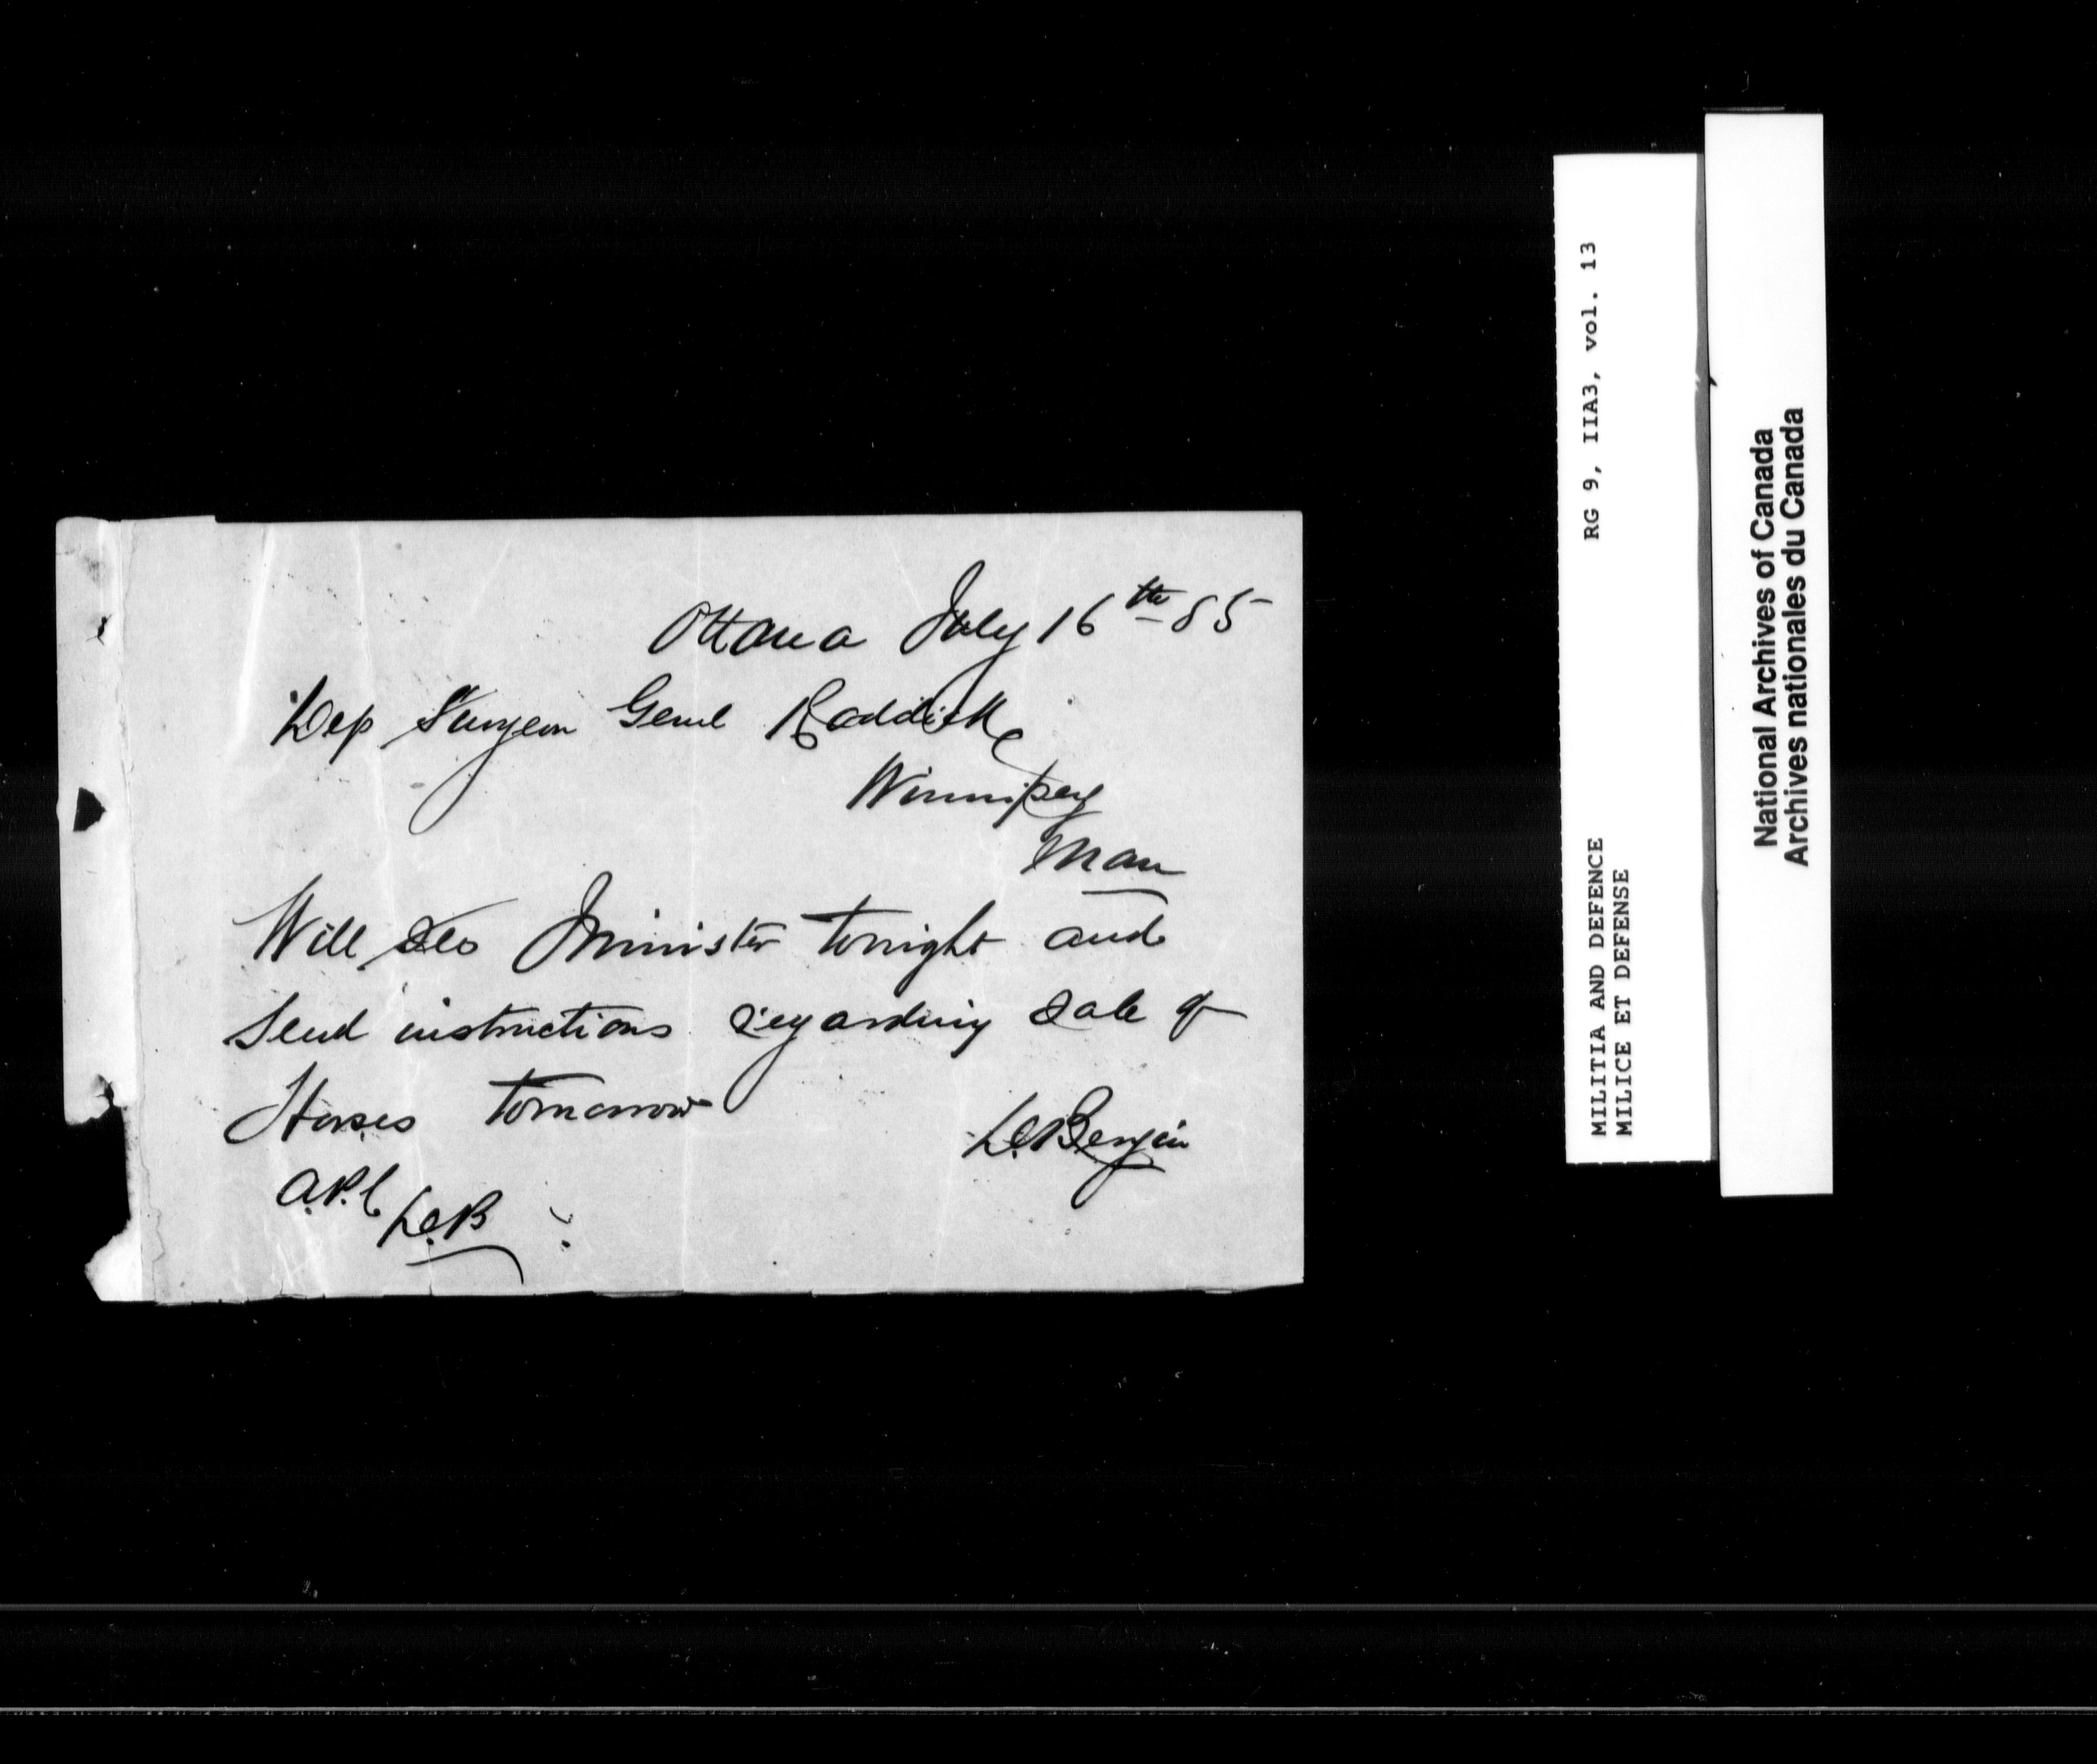 Ottawa July 16th 85
Dep Surgeon Genl Roddick
Winnipeg
Man
Will see Minister tonight and
Send instructions regarding sale of
Horses tomorrow
D. Bergin
D.B
RG 9, IIA3, vol. 13
MILITIA AND DEFENCE
MILICE ET DEFENSE
National Archives of Canada
Archives nationales du Canada